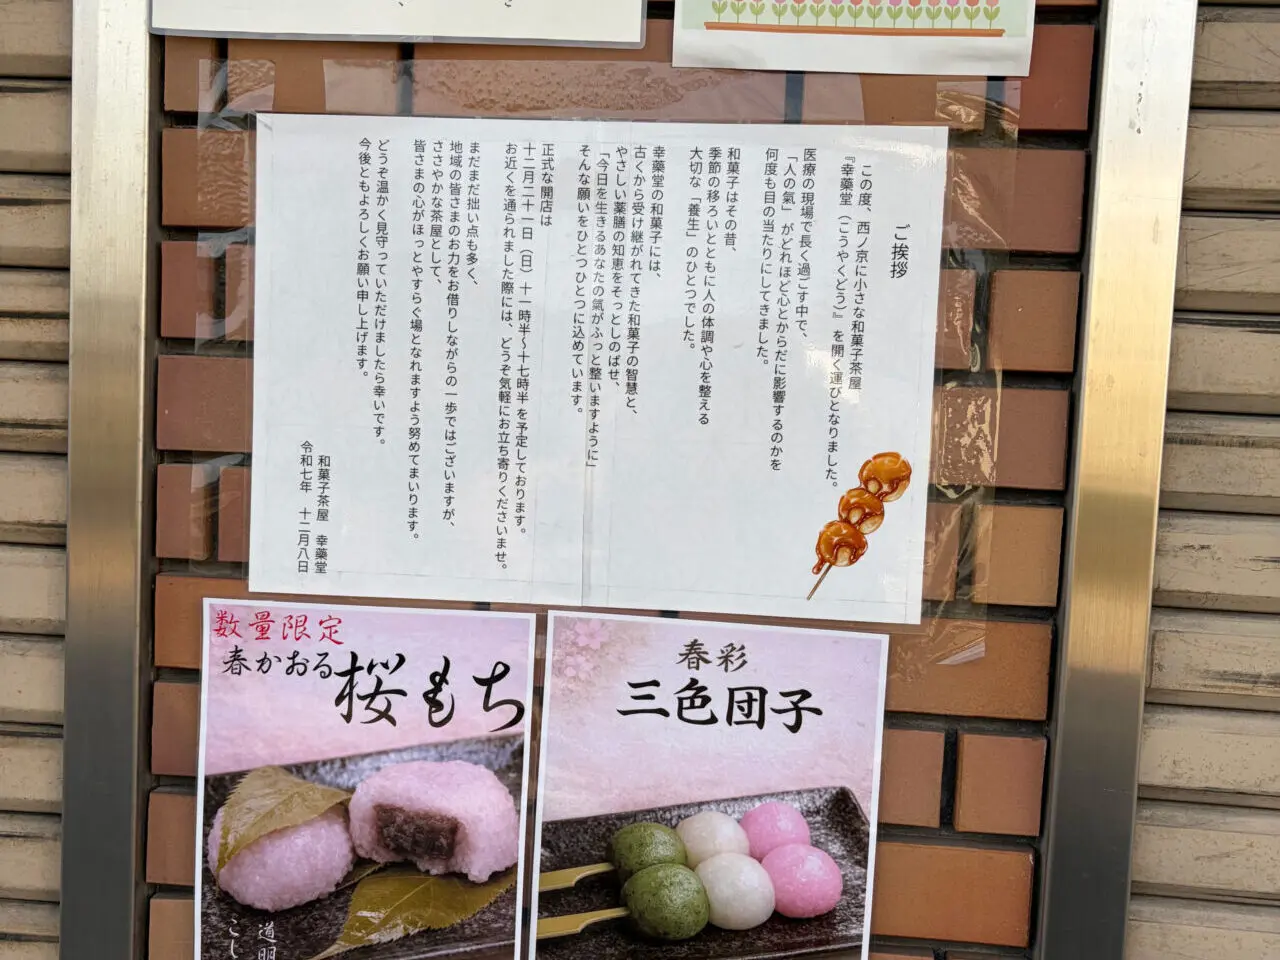 ご挨拶
この度、西ノ京に小さな和菓子茶屋
『幸藥堂（こうやくどう）』を開く運びとなりました。
医療の現場で長く過ごす中で、
「人の氣」がどれほど心とからだに影響するのかを
何度も目の当たりにしてきました。
和菓子はその昔、
季節の移ろいとともに人の体調や心を整える
大切な「養生」のひとつでした。
幸藥堂の和菓子には、
古くから受け継がれてきた和菓子の智慧と、
やさしい薬膳の知恵をそっとしのばせ、
「今日を生きるあなたの氣がふっと整いますように」
そんな願いをひとつひとつに込めています。
正式な開店は
十二月二十一日（日）十一時半～十七時半を予定しております。
お近くを通られました際には、どうぞ気軽にお立ち寄りくださいませ。
まだまだ拙い点も多く、
地域の皆さまのお力をお借りしながらの一歩ではございますが、
ささやかな茶屋として、
皆さまの心がほっとやすらぐ場となれますよう努めてまいります。
どうぞ温かく見守っていただけましたら幸いです。
今後ともよろしくお願い申し上げます。
和菓子茶屋　幸藥堂
令和七年　十二月八日
数量限定
春かおる桜もち
道明
こし
春彩
三色団子